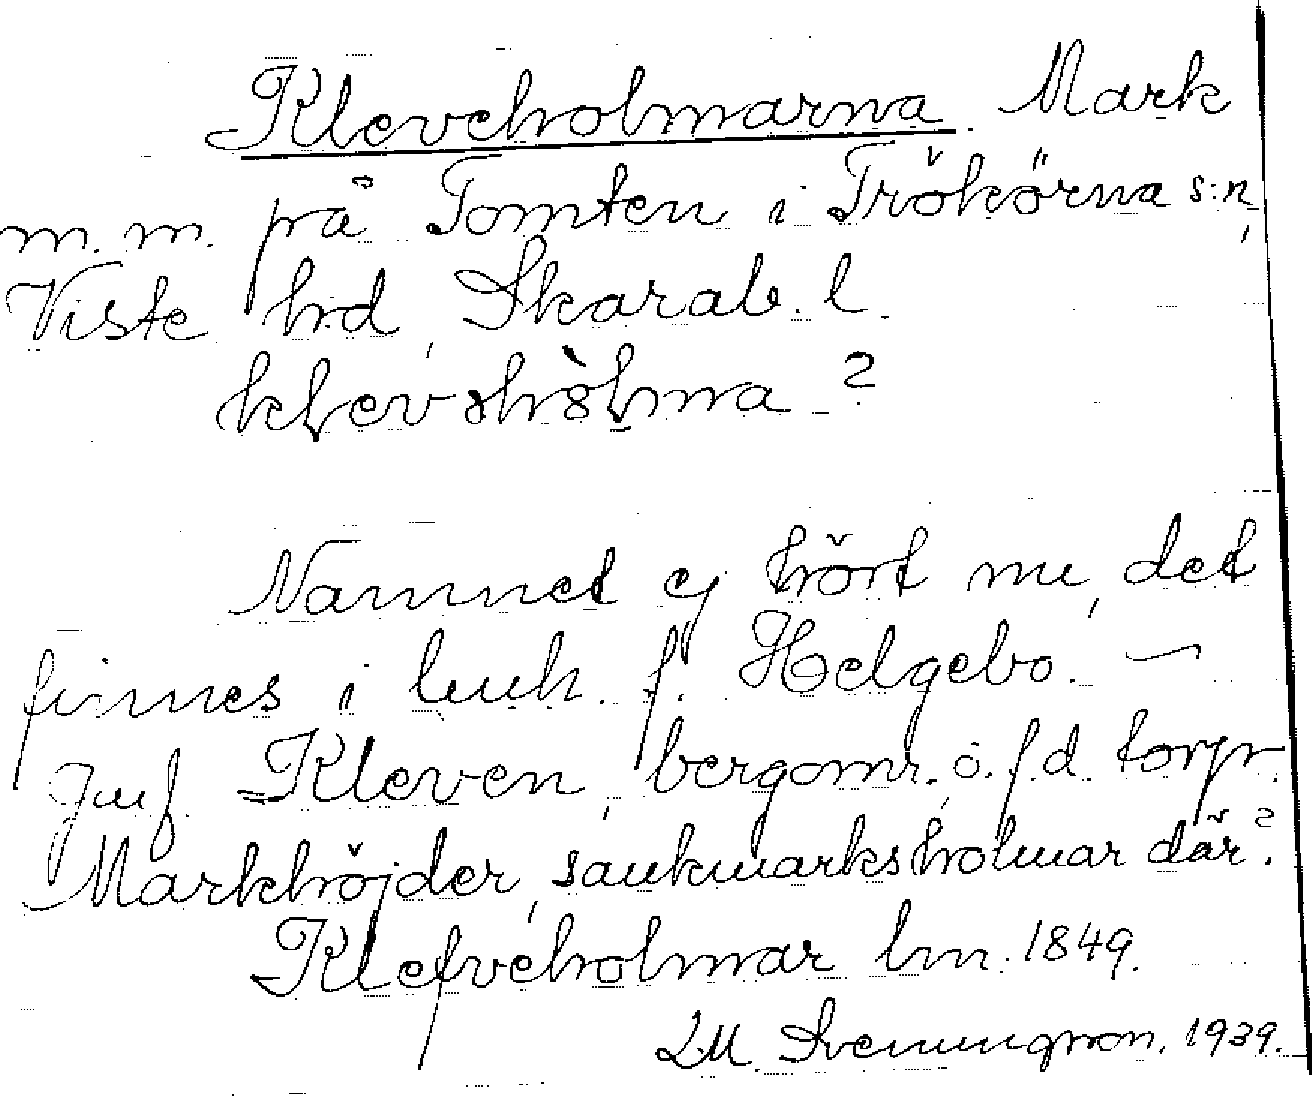 Kleveholmarna. Mark
m. m. på Tomten i Trökörna s:n,
Viste hd, Skarab. l.
Namnet ej hört nu, det
finnes i luuk. f. Helgebo. —
Jmf. Kleven, bergomr. ö. f. d. torpr.
Markhöjder, sankmarksholmar där?
Klefveholmar lm. 1849.
LM. Svenungsson. 1939.